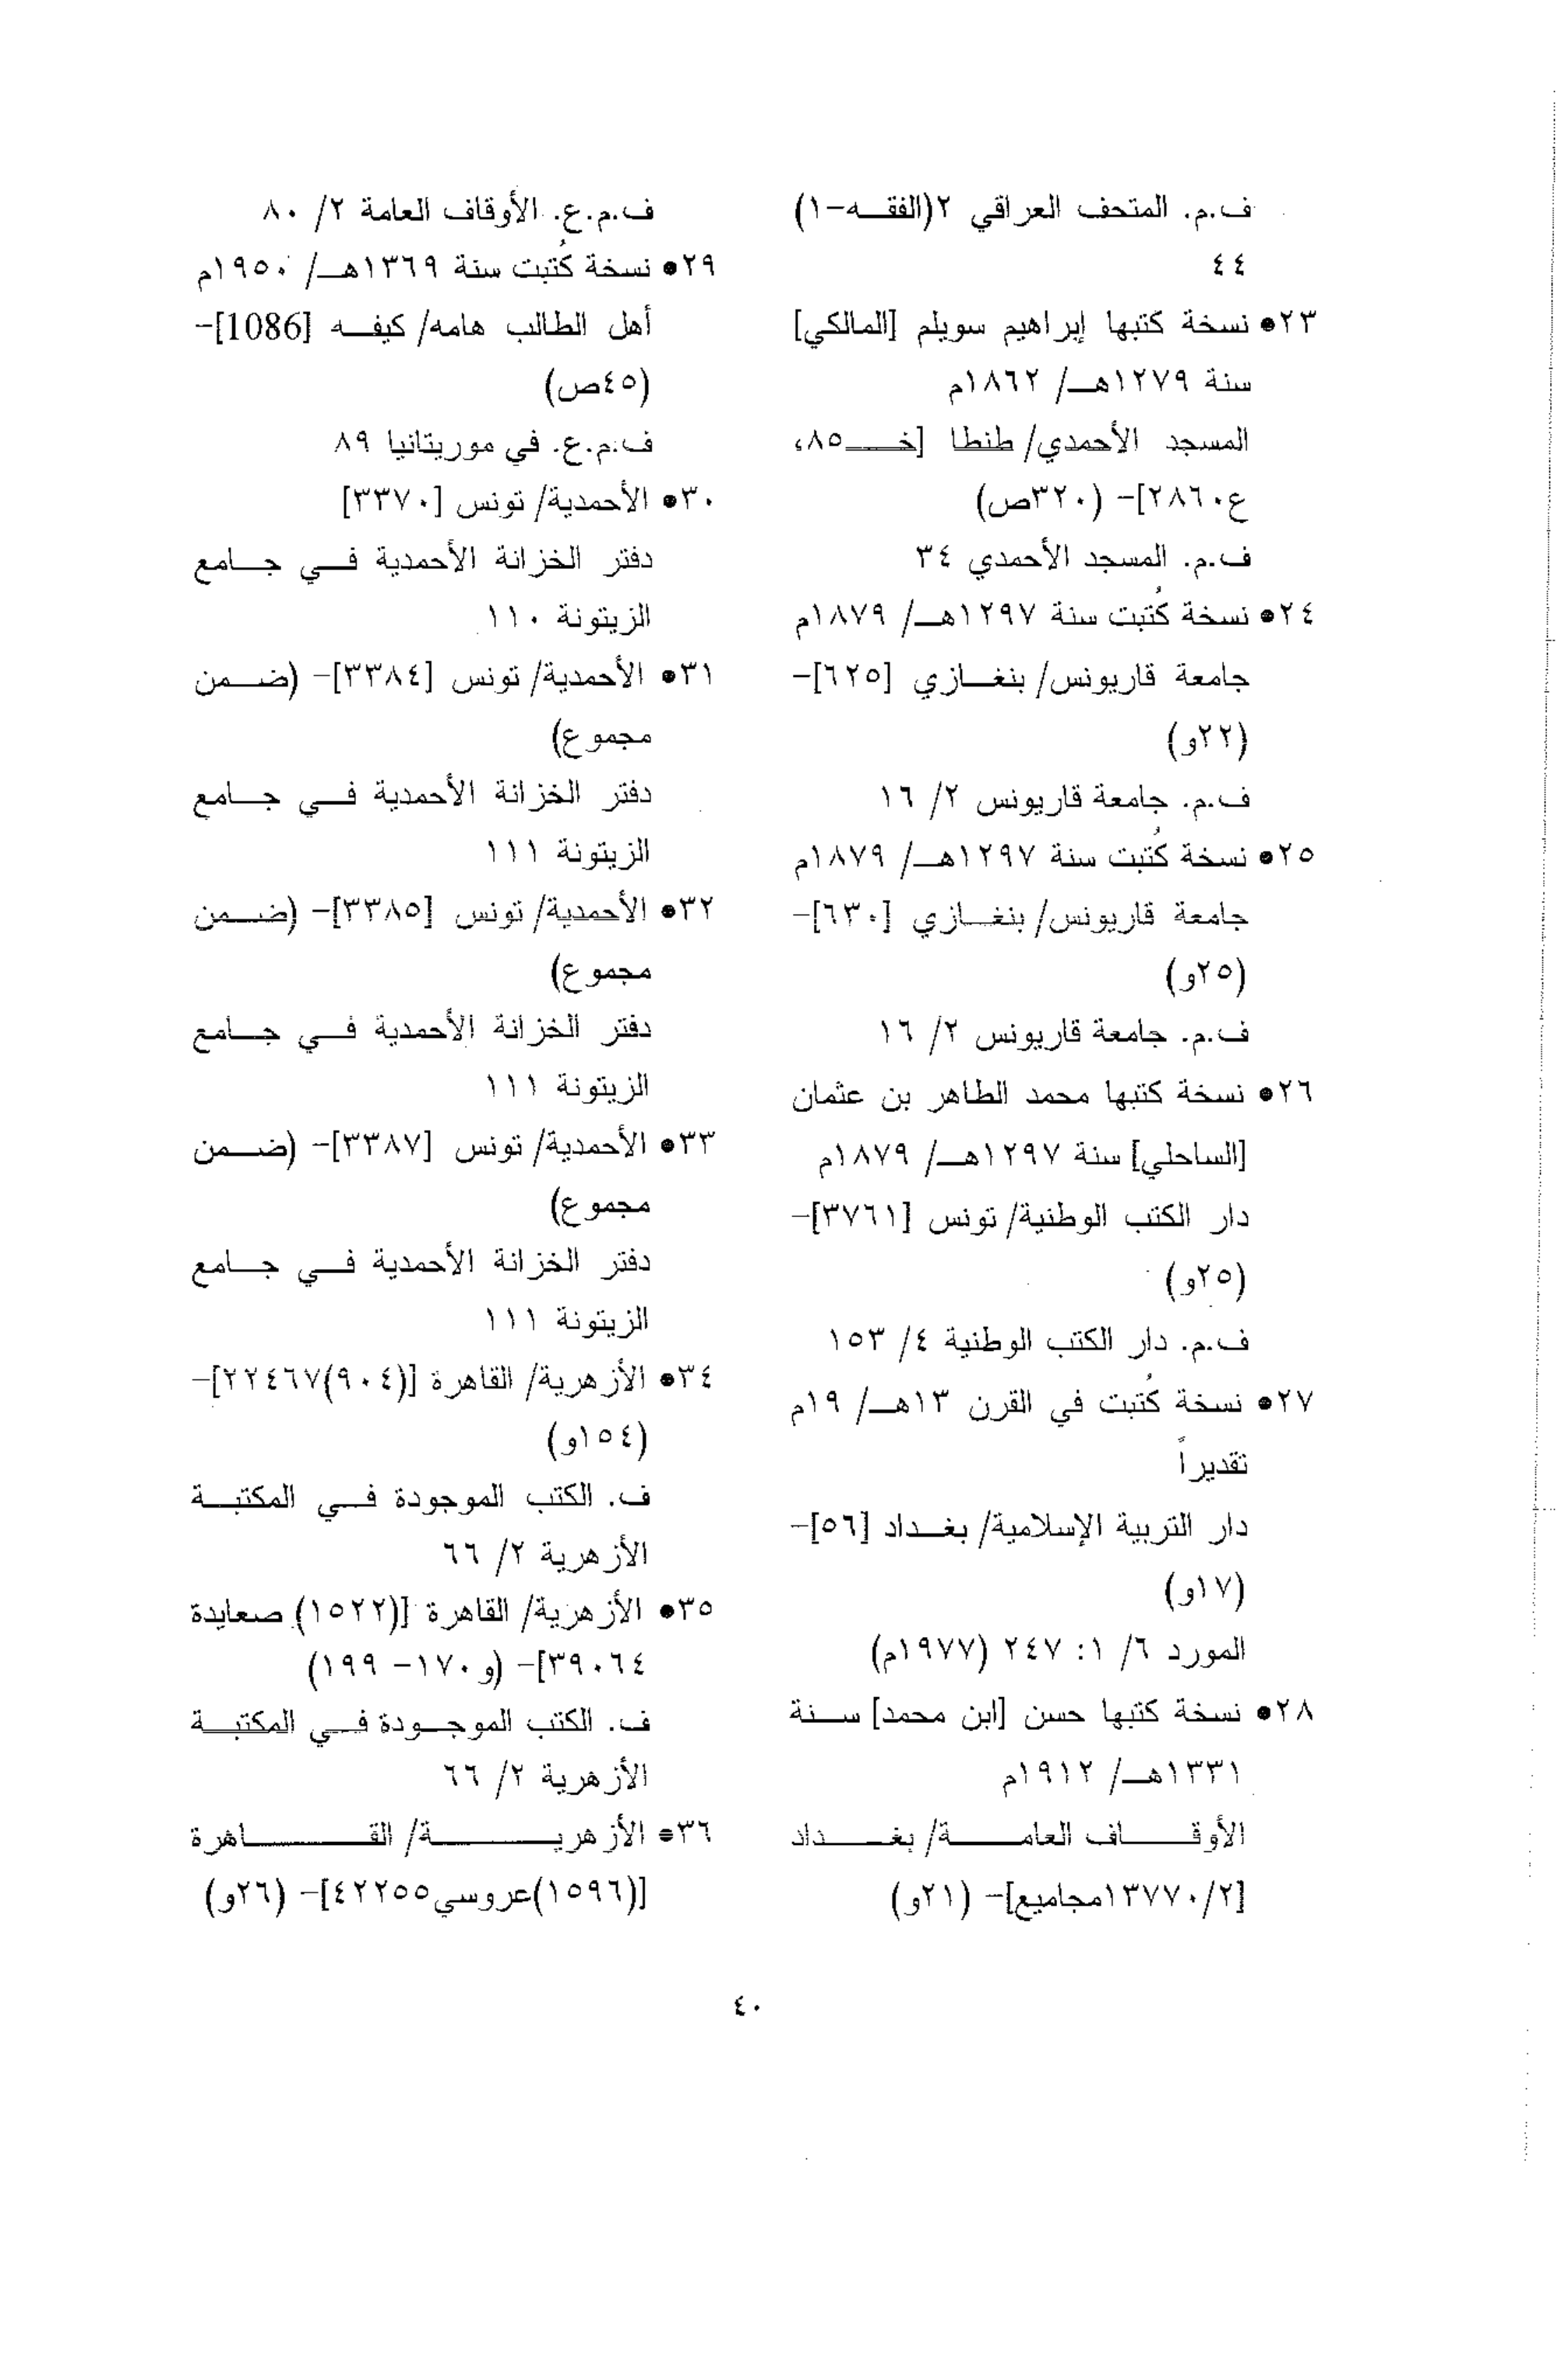 ف.م. المتحف العراقي ٢(الفقه-١)
٤٤
٢٣• نسخة كتبها إبراهيم سويلم [المالكي]
سنة ١٢٧٩هـ/ ١٨٦٢م
المسجد الأحمدي/ طنطا [خـ٨٥،
ع٢٨٦٠]- (٣٢٠ص)
ف.م. المسجد الأحمدي ٣٤
٢٤• نسخة كُتبت سنة ١٢٩٧هـ/ ١٨٧٩م
جامعة قاريونس/ بنغازي [٦٢٥]-
(٢٢و)
ف.م. جامعة قاريونس ٢/ ١٦
٢٥• نسخة كُتبت سنة ١٢٩٧هـ/ ١٨٧٩م
جامعة قاريونس/ بنغازي [٦٣٠]-
(٢٥و)
ف.م. جامعة قاريونس ٢/ ١٦
٢٦• نسخة كتبها محمد الطاهر بن عثمان
[الساحلي] سنة ١٢٩٧هـ/ ١٨٧٩م
دار الكتب الوطنية/ تونس [٣٧٦١]-
(٢٥و)
ف.م. دار الكتب الوطنية ٤/ ١٥٣
٢٧• نسخة كُتبت في القرن ١٣هـ/ ١٩م
تقديراً
دار التربية الإسلامية/ بغداد [٥٦]-
(١٧و)
المورد ٦/ ١: ٢٤٧ (١٩٧٧م)
٢٨• نسخة كتبها حسن [ابن محمد] سنة
١٣٣١هـ/ ١٩١٢م
الأوقاف العامة/ بغداد
[١٣٧٧٠/٢مجاميع]- (٢١و)
ف.م.ع. الأوقاف العامة ٢/ ٨٠
٢٩• نسخة كُتبت سنة ١٣٦٩هـ/ ١٩٥٠م
أهل الطالب هامه/ كيفه [1086]-
(٤٥ص)
ف.م.ع. في موريتانيا ٨٩
٣٠• الأحمدية/ تونس [٣٣٧٠]
دفتر الخزانة الأحمدية في جامع
الزيتونة ١١٠
٣١• الأحمدية/ تونس [٣٣٨٤]- (ضمن
مجموع)
دفتر الخزانة الأحمدية في جامع
الزيتونة ١١١
٣٢• الأحمدية/ تونس [٣٣٨٥]- (ضمن
مجموع)
دفتر الخزانة الأحمدية في جامع
الزيتونة ١١١
٣٣• الأحمدية/ تونس [٣٣٨٧]- (ضمن
مجموع)
دفتر الخزانة الأحمدية في جامع
الزيتونة ١١١
٣٤• الأزهرية/ القاهرة [(٩٠٤)٢٢٤٦٧]-
(١٥٤و)
ف. الكتب الموجودة في المكتبة
الأزهرية ٢/ ٦٦
٣٥• الأزهرية/ القاهرة [(١٥٢٢) صعايدة
٣٩٠٦٤]- (و١٧٠- ١٩٩)
ف. الكتب الموجودة في المكتبة
الأزهرية ٢/ ٦٦
٣٦• الأزهرية/ القاهرة
[(١٥٩٦)عروسي٤٢٢٥٥]- (٢٦و)
٤٠